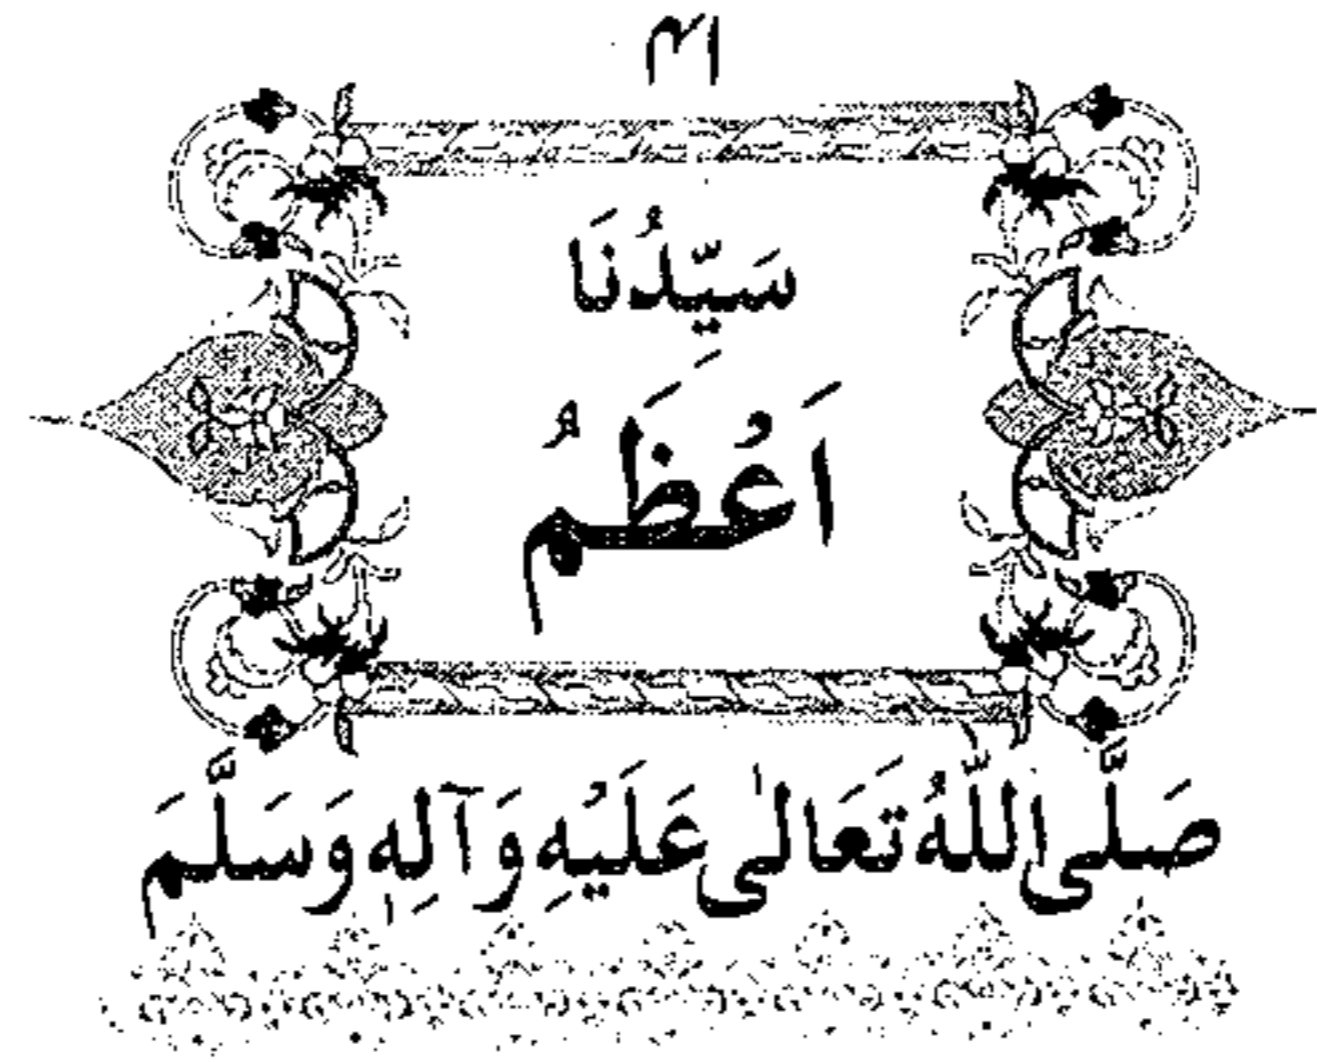 سَيِّدُنَا
اَعْظَمُ
صَلَّى اللّٰهُ تَعَالٰى عَلَيْهِ وَآلِهٖ وَسَلَّمَ